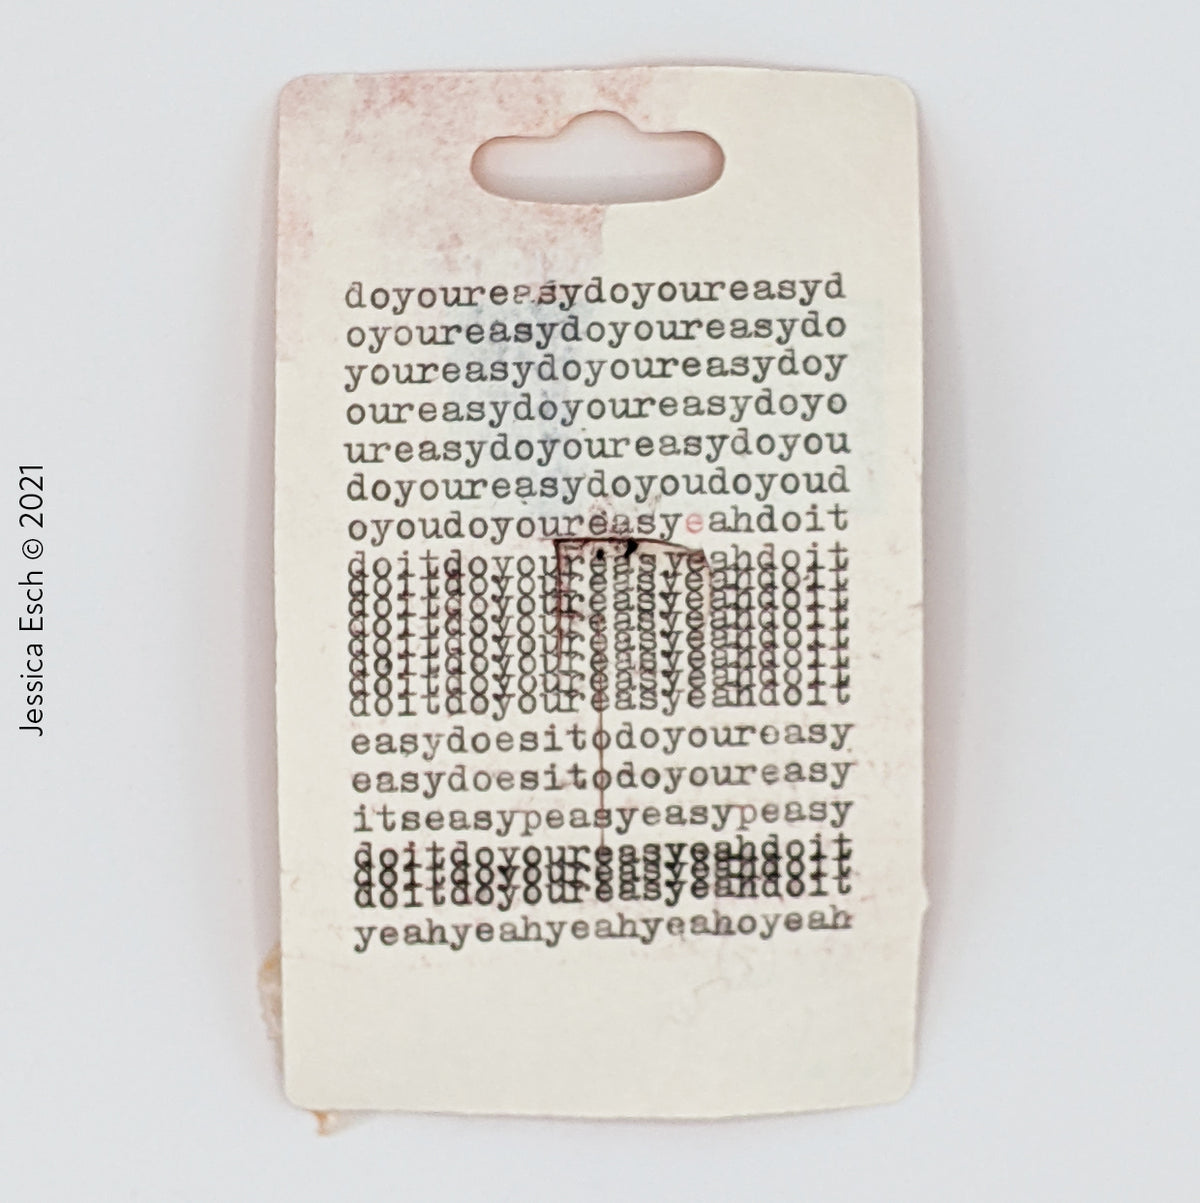 doyoureasydoyoureasyd
oyoureasydoyoureasydo
youreasydoyoureasydoy
oureasydoyoureasydoyo
ureasydoyoureasydoyou
doyoureasydoyoudoyoud
oyoudoyoureasyeahdoit
doitdoyoureasyeahdoit
doitdoyoureasyeahdoit
doitdoyoureasyeahdoit
doitdoyoureasyeahdoit
doitdoyoureasyeahdoit
doitdoyoureasyeahdoit
doitdoyoureasyeahdoit
doitdoyoureasyeahdoit
easydoesitodoyoureasy
easydoesitodoyoureasy
itseasypeasyeasypeasy
doitdoyoureasyeahdoit
doitdoyoureasyeahdoit
doitdoyoureasyeahdoit
yeahyeahyeahyeahoyeah
Jessica Esch © 2021